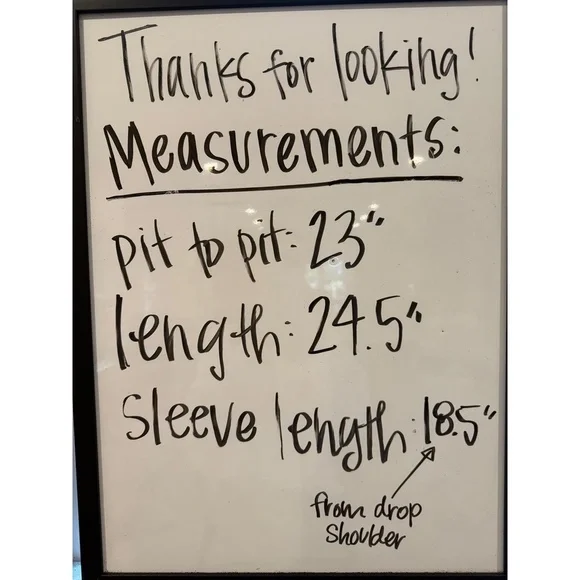 Thanks for looking!
Measurements:
pit to pit: 23"
length: 24.5"
Sleeve length: 18.5"
from drop
Shoulder